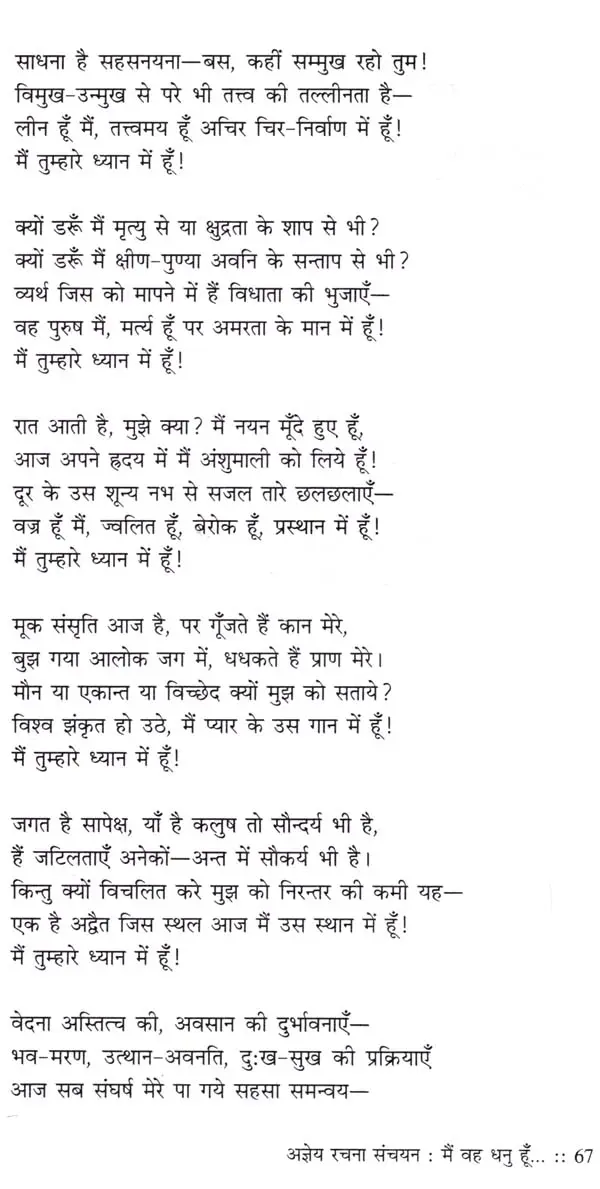 साधना है सहसनयना—बस, कहीं सम्मुख रहो तुम!
विमुख-उन्मुख से परे भी तत्त्व की तल्लीनता है—
लीन हूँ मैं, तत्त्वमय हूँ अचिर चिर-निर्वाण में हूँ!
मैं तुम्हारे ध्यान में हूँ!
क्यों डरूँ मैं मृत्यु से या क्षुद्रता के शाप से भी?
क्यों डरूँ मैं क्षीण-पुण्या अवनि के सन्ताप से भी?
व्यर्थ जिस को मापने में हैं विधाता की भुजाएँ—
वह पुरुष मैं, मर्त्य हूँ पर अमरता के मान में हूँ!
मैं तुम्हारे ध्यान में हूँ!
रात आती है, मुझे क्या? मैं नयन मूँदे हुए हूँ,
आज अपने हृदय में मैं अंशुमाली को लिये हूँ!
दूर के उस शून्य नभ से सजल तारे छलछलाएँ—
वज्र हूँ मैं, ज्वलित हूँ, बेरोक हूँ, प्रस्थान में हूँ!
मैं तुम्हारे ध्यान में हूँ!
मूक संसृति आज है, पर गूँजते हैं कान मेरे,
बुझ गया आलोक जग में, धधकते हैं प्राण मेरे।
मौन या एकान्त या विच्छेद क्यों मुझ को सताये?
विश्व झंकृत हो उठे, मैं प्यार के उस गान में हूँ!
मैं तुम्हारे ध्यान में हूँ!
जगत है सापेक्ष, याँ है कलुष तो सौन्दर्य भी है,
हैं जटिलताएँ अनेकों—अन्त में सौकर्य भी है।
किन्तु क्यों विचलित करे मुझ को निरन्तर की कमी यह—
एक है अद्वैत जिस स्थल आज मैं उस स्थान में हूँ!
मैं तुम्हारे ध्यान में हूँ!
वेदना अस्तित्व की, अवसान की दुर्भावनाएँ—
भव-मरण, उत्थान-अवनति, दुःख-सुख की प्रक्रियाएँ
आज सब संघर्ष मेरे पा गये सहसा समन्वय—
अज्ञेय रचना संचयन : मैं वह धनु हूँ... :: 67